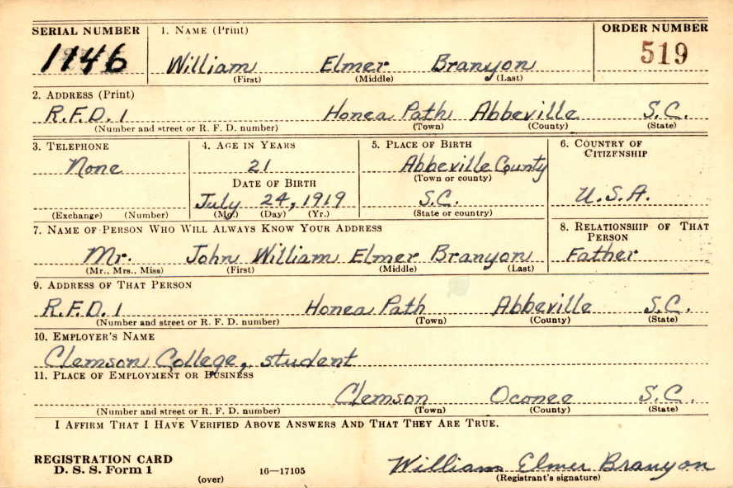 SERIAL NUMBER 1. NAME (Print) ORDER NUMBER
1146 William Elmer Branyon 519
(First) (Middle) (Last)
2. ADDRESS (Print)
R.F.D. 1 Honea Path Abbeville S.C.
(Number and street or R. F. D. number) (Town) (County) (State)
3. TELEPHONE 4. AGE IN YEARS 5. PLACE OF BIRTH 6. COUNTRY OF CITIZENSHIP
None 21 Abbeville County
DATE OF BIRTH (Town or county)
July 24, 1919 S.C. U.S.A.
(Exchange) (Number) (Mo.) (Day) (Yr.) (State or country)
7. NAME OF PERSON WHO WILL ALWAYS KNOW YOUR ADDRESS 8. RELATIONSHIP OF THAT PERSON
Mr. John William Elmer Branyon Father
(Mr., Mrs., Miss) (First) (Middle) (Last)
9. ADDRESS OF THAT PERSON
R.F.D. 1 Honea Path Abbeville S.C.
(Number and street or R. F. D. number) (Town) (County) (State)
10. EMPLOYER'S NAME
Clemson College, student
11. PLACE OF EMPLOYMENT OR BUSINESS
Clemson Oconee S.C.
(Number and street or R. F. D. number) (Town) (County) (State)
I AFFIRM THAT I HAVE VERIFIED ABOVE ANSWERS AND THAT THEY ARE TRUE.
REGISTRATION CARD
D. S. S. Form 1 William Elmer Branyon
(over) 16—17105 (Registrant's signature)